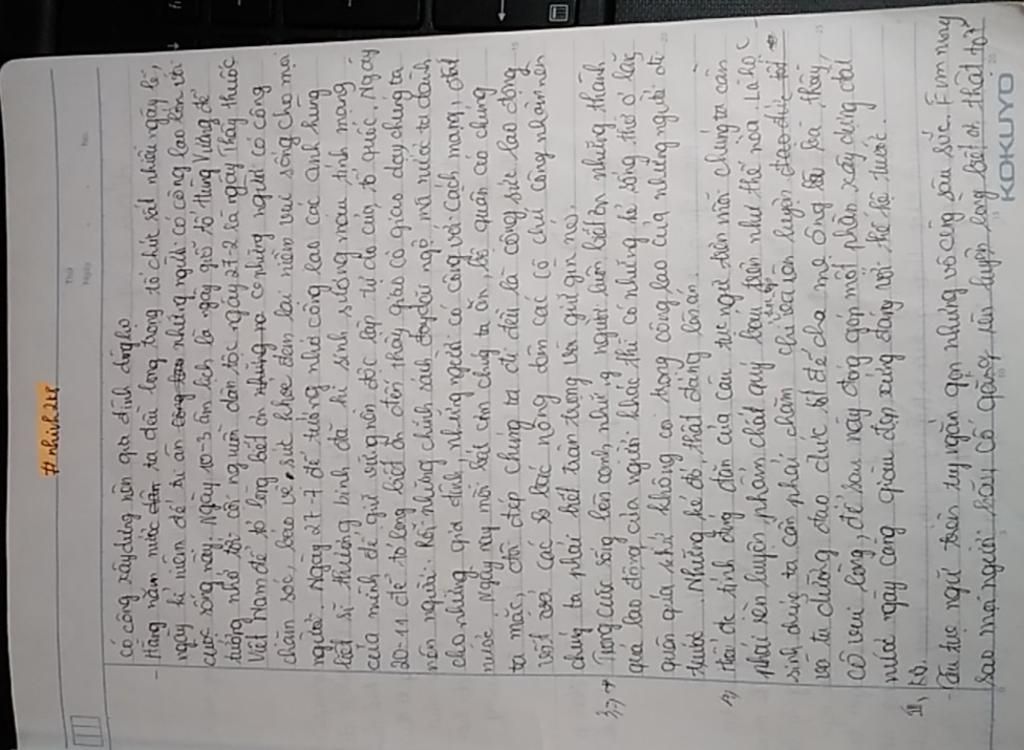 #nhinh248
Thứ
Ngày
No.
có công xây dựng nên gia đình dòng họ
- Hàng năm nước ta đều long trọng tổ chức rất nhiều ngày lễ,
ngày kỉ niệm để tri ân những người có công lao lớn với
cuộc sống này. Ngày 10-3 âm lịch là ngày giỗ tổ Hùng Vương để
tưởng nhớ tới cội nguồn dân tộc ngày 27-2 là ngày Thầy thuốc
Việt Nam để tỏ lòng biết ơn những người có công
chăm sóc, bảo vệ sức khỏe đem lại niềm vui sống cho mọi
người. Ngày 27-7 để tưởng nhớ công lao các anh hùng
liệt sĩ thương binh đã hi sinh xương máu tính mạng
của mình để giữ vững nền độc lập tự do của tổ quốc. Ngày
20-11 để tỏ lòng biết ơn đến thầy giáo cô giáo dạy chúng ta
nên người. Rồi những chính sách đãi ngộ mà nước ta dành
cho những gia đình những người có công với Cách mạng, đất
nước. Ngày nay mỗi bát cơm chúng ta ăn, bộ quần áo chúng
ta mặc, đôi dép chúng ta đi đều là công sức lao động
vất vả các bác nông dân các cô chú công nhân nên
chúng ta phải biết trân trọng và giữ gìn nó.
3, → Trong cuộc sống bên cạnh những người luôn biết ơn những thành
quả lao động của người khác thì có những kẻ sống thờ ơ lãng
quên quá khứ không coi trọng công lao của những người đi
trước. Những kẻ đó thật đáng lên án.
4, Từ sự đúng đắn của câu tục ngữ trên mỗi chúng ta cần
phải rèn luyện phẩm chất quý báu trên như thế nào. Là học
sinh chúng ta cần phải chăm chỉ học tập rèn luyện
và tu dưỡng đạo đức tốt để cha mẹ ông bà, thầy
cô vui lòng, để sau này đóng góp một phần xây dựng đất
nước ngày càng giàu đẹp xứng đáng với thế hệ trước.
III, KB.
- Câu tục ngữ trên tuy ngắn gọn nhưng vô cùng sâu sắc. Em mong
sao mọi người hãy cố gắng rèn luyện lòng biết ơn thật tốt
KOKUYO